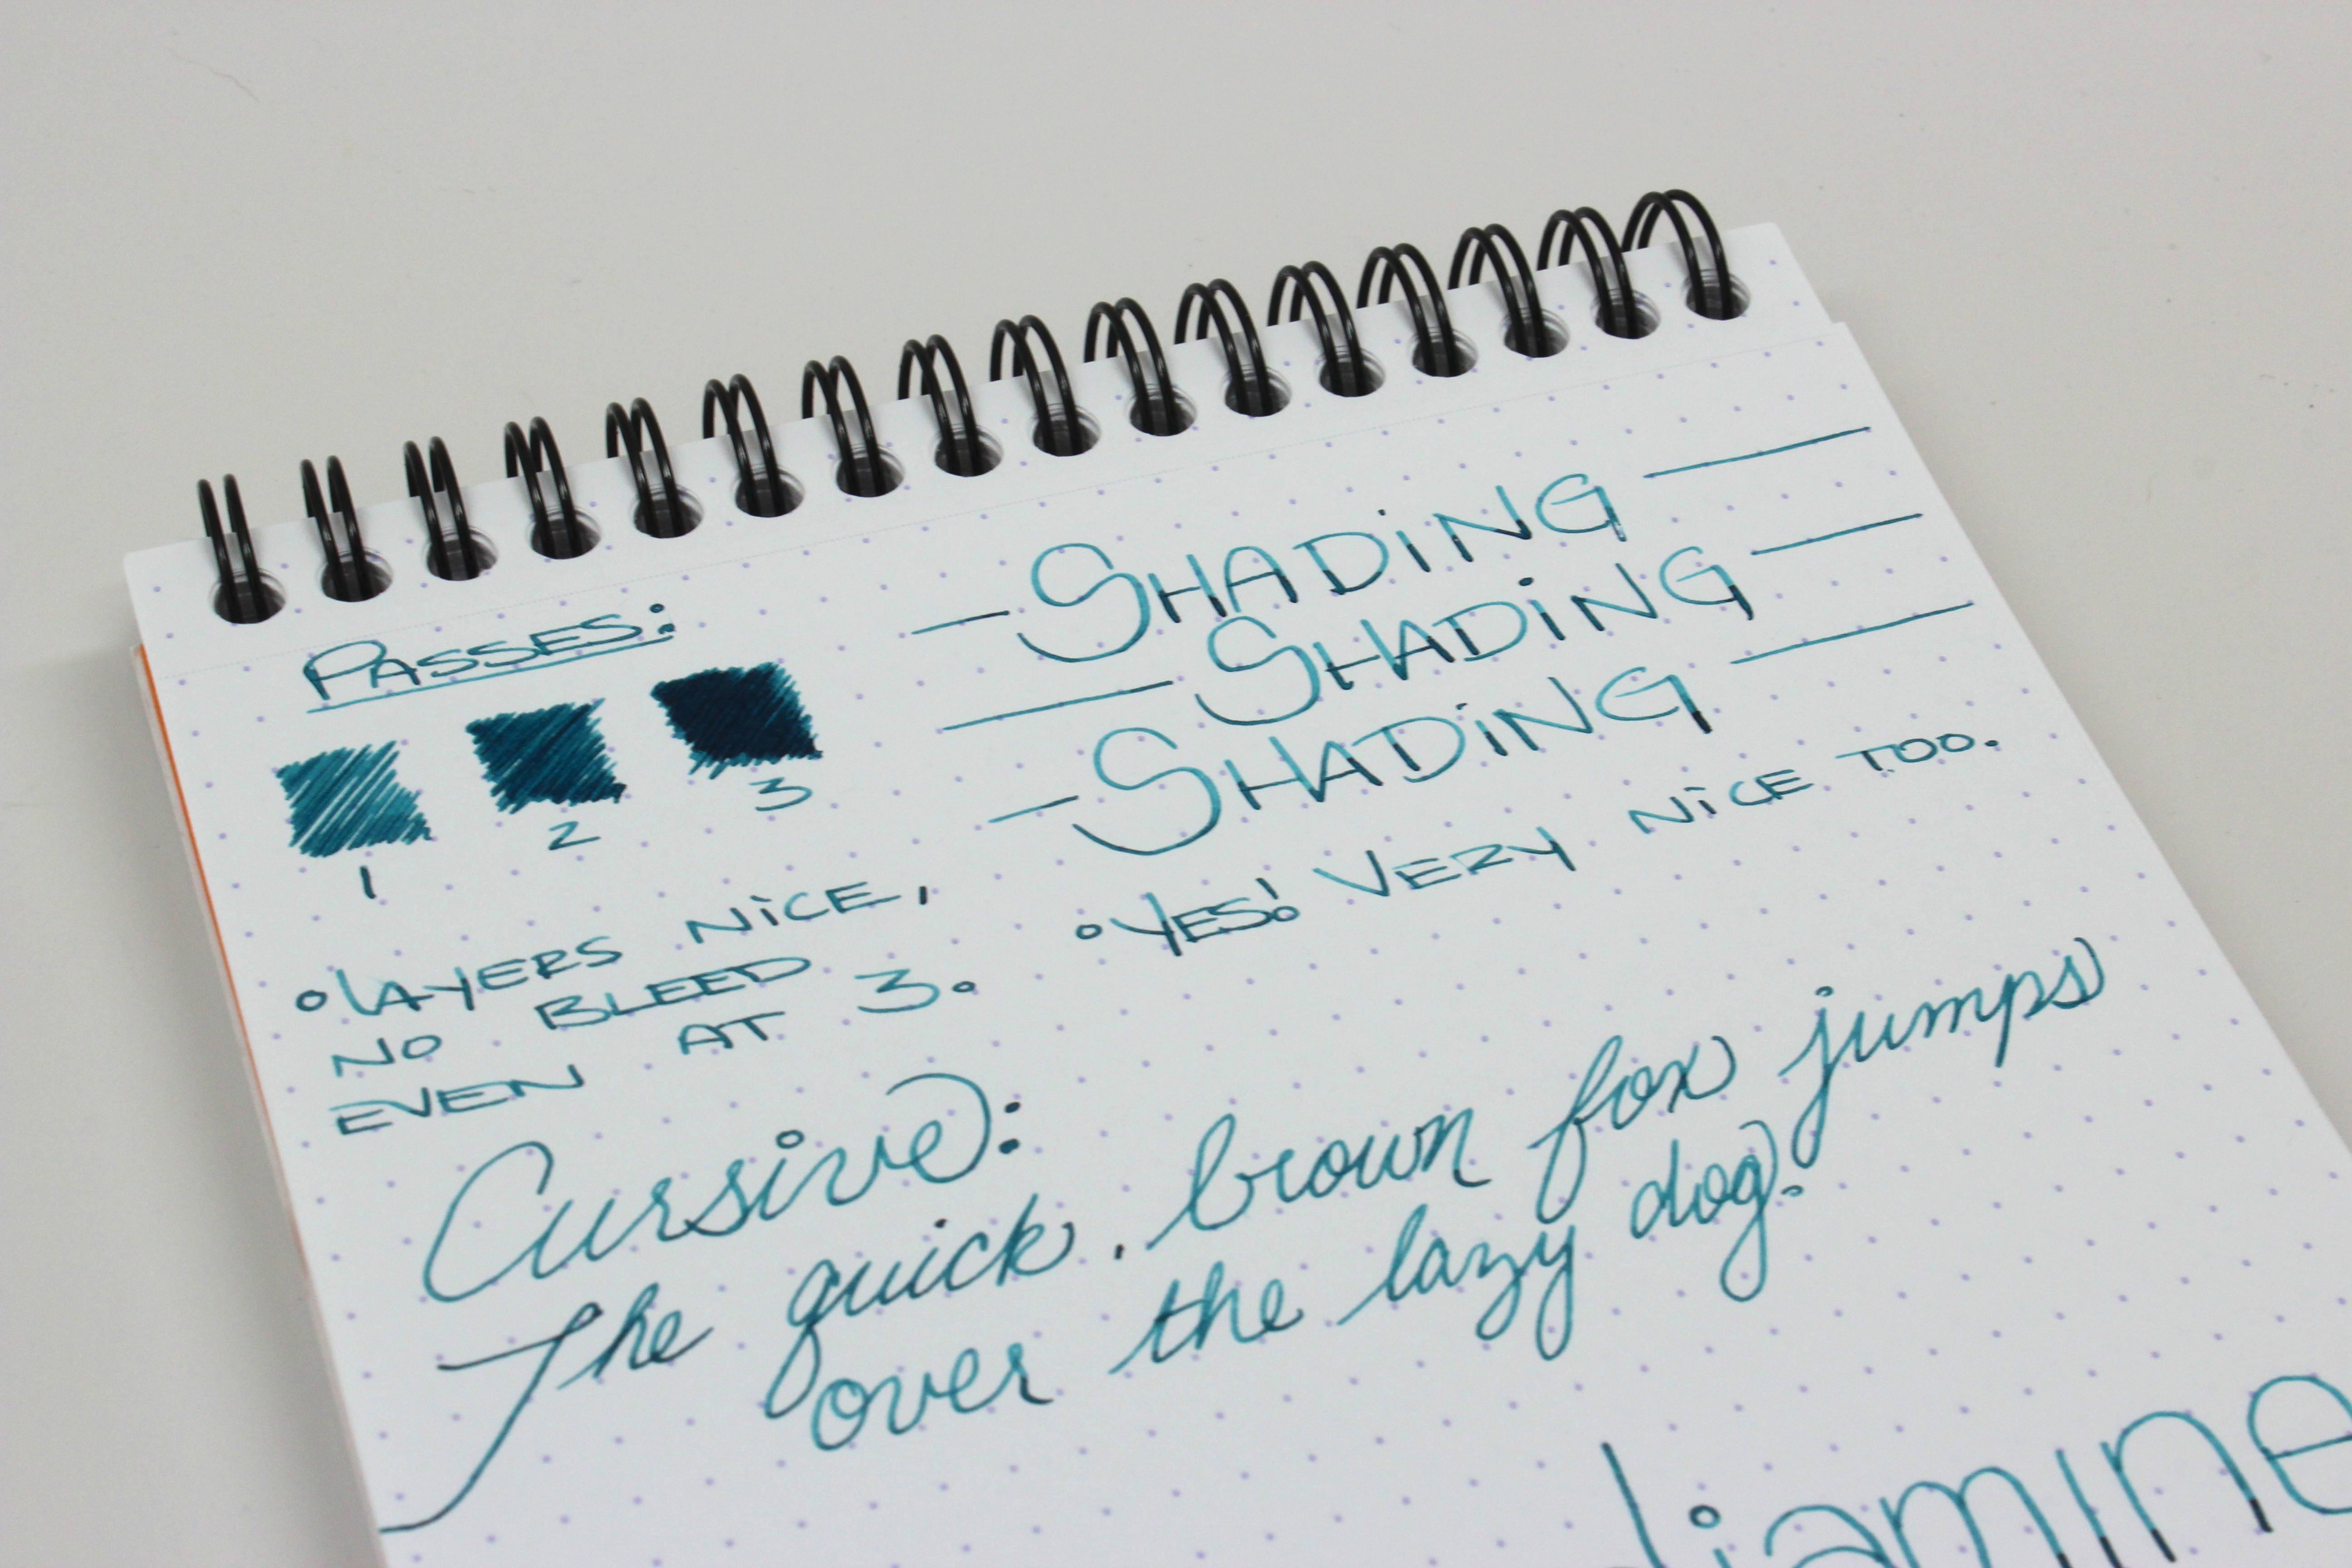 PASSES:
1 2 3
• LAYERS NICE,
NO BLEED
EVEN AT 3.
— SHADING —
— SHADING —
— SHADING —
• YES! VERY NICE TOO.
Cursive:
The quick brown fox jumps
over the lazy dog.
diamine